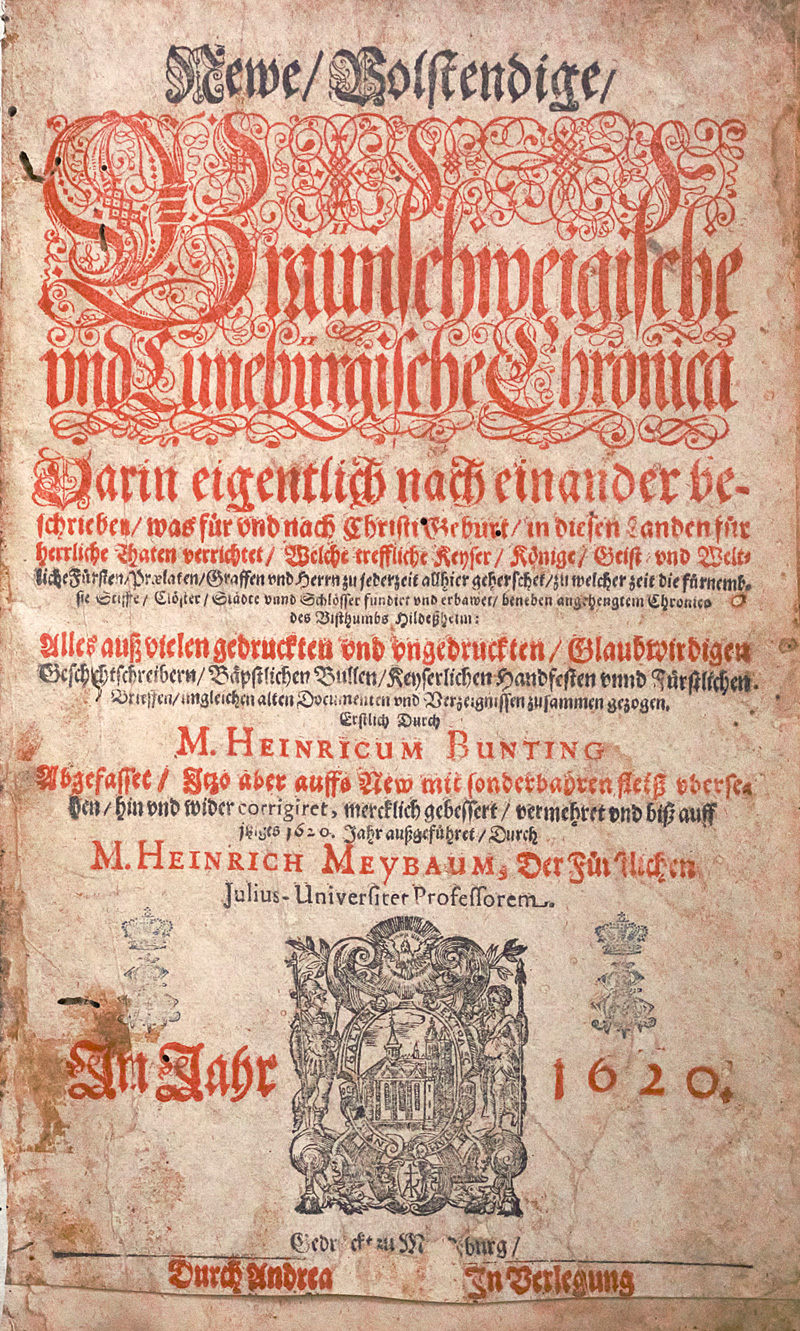 Newe/ Volstendige/
Braunschweigische
vnd Lüneburgische Chronica
Darin eigentlich nach einander be-
schrieben/ was für vnd nach Christi Geburt/ in diesen Landen für
herrliche Thaten verrichtet/ Welche treffliche Keyser/ Könige/ Geist vnd Welt-
liche Fürsten/ Prælaten/ Graffen vnd Herrn zu jederzeit allhier geherschet/ zu welcher zeit die fürnemb-
ste Stiffte/ Clöster/ Städte vnnd Schlösser fundirt vnd erbawet/ beneben angehengtem Chronico
des Bisthumbs Hildeßheim:
Alles auß vielen gedruckten vnd vngedruckten/ Glaubwirdigen
Geschichtschreibern/ Bäpstlichen Bullen/ Keyserlichen Handfesten vnnd Fürstlichen
Brieffen/ imgleichen alten Documenten vnd Verzeignissen zusammen gezogen.
Erstlich Durch
M. HEINRICUM BUNTING
Abgefasset/ Itzo aber auffs New mit sonderbahren fleiß vberse-
hen/ hin vnd wider corrigiret, mercklich gebessert/ vermehret vnd biß auff
jtziges 1620. Jahr außgeführet/ Durch
M. HEINRICH MEYBAUM, Der
Julius-Universitet Professorem.
Im Jahr 1620.
zu
Durch Andrea In Verlegung